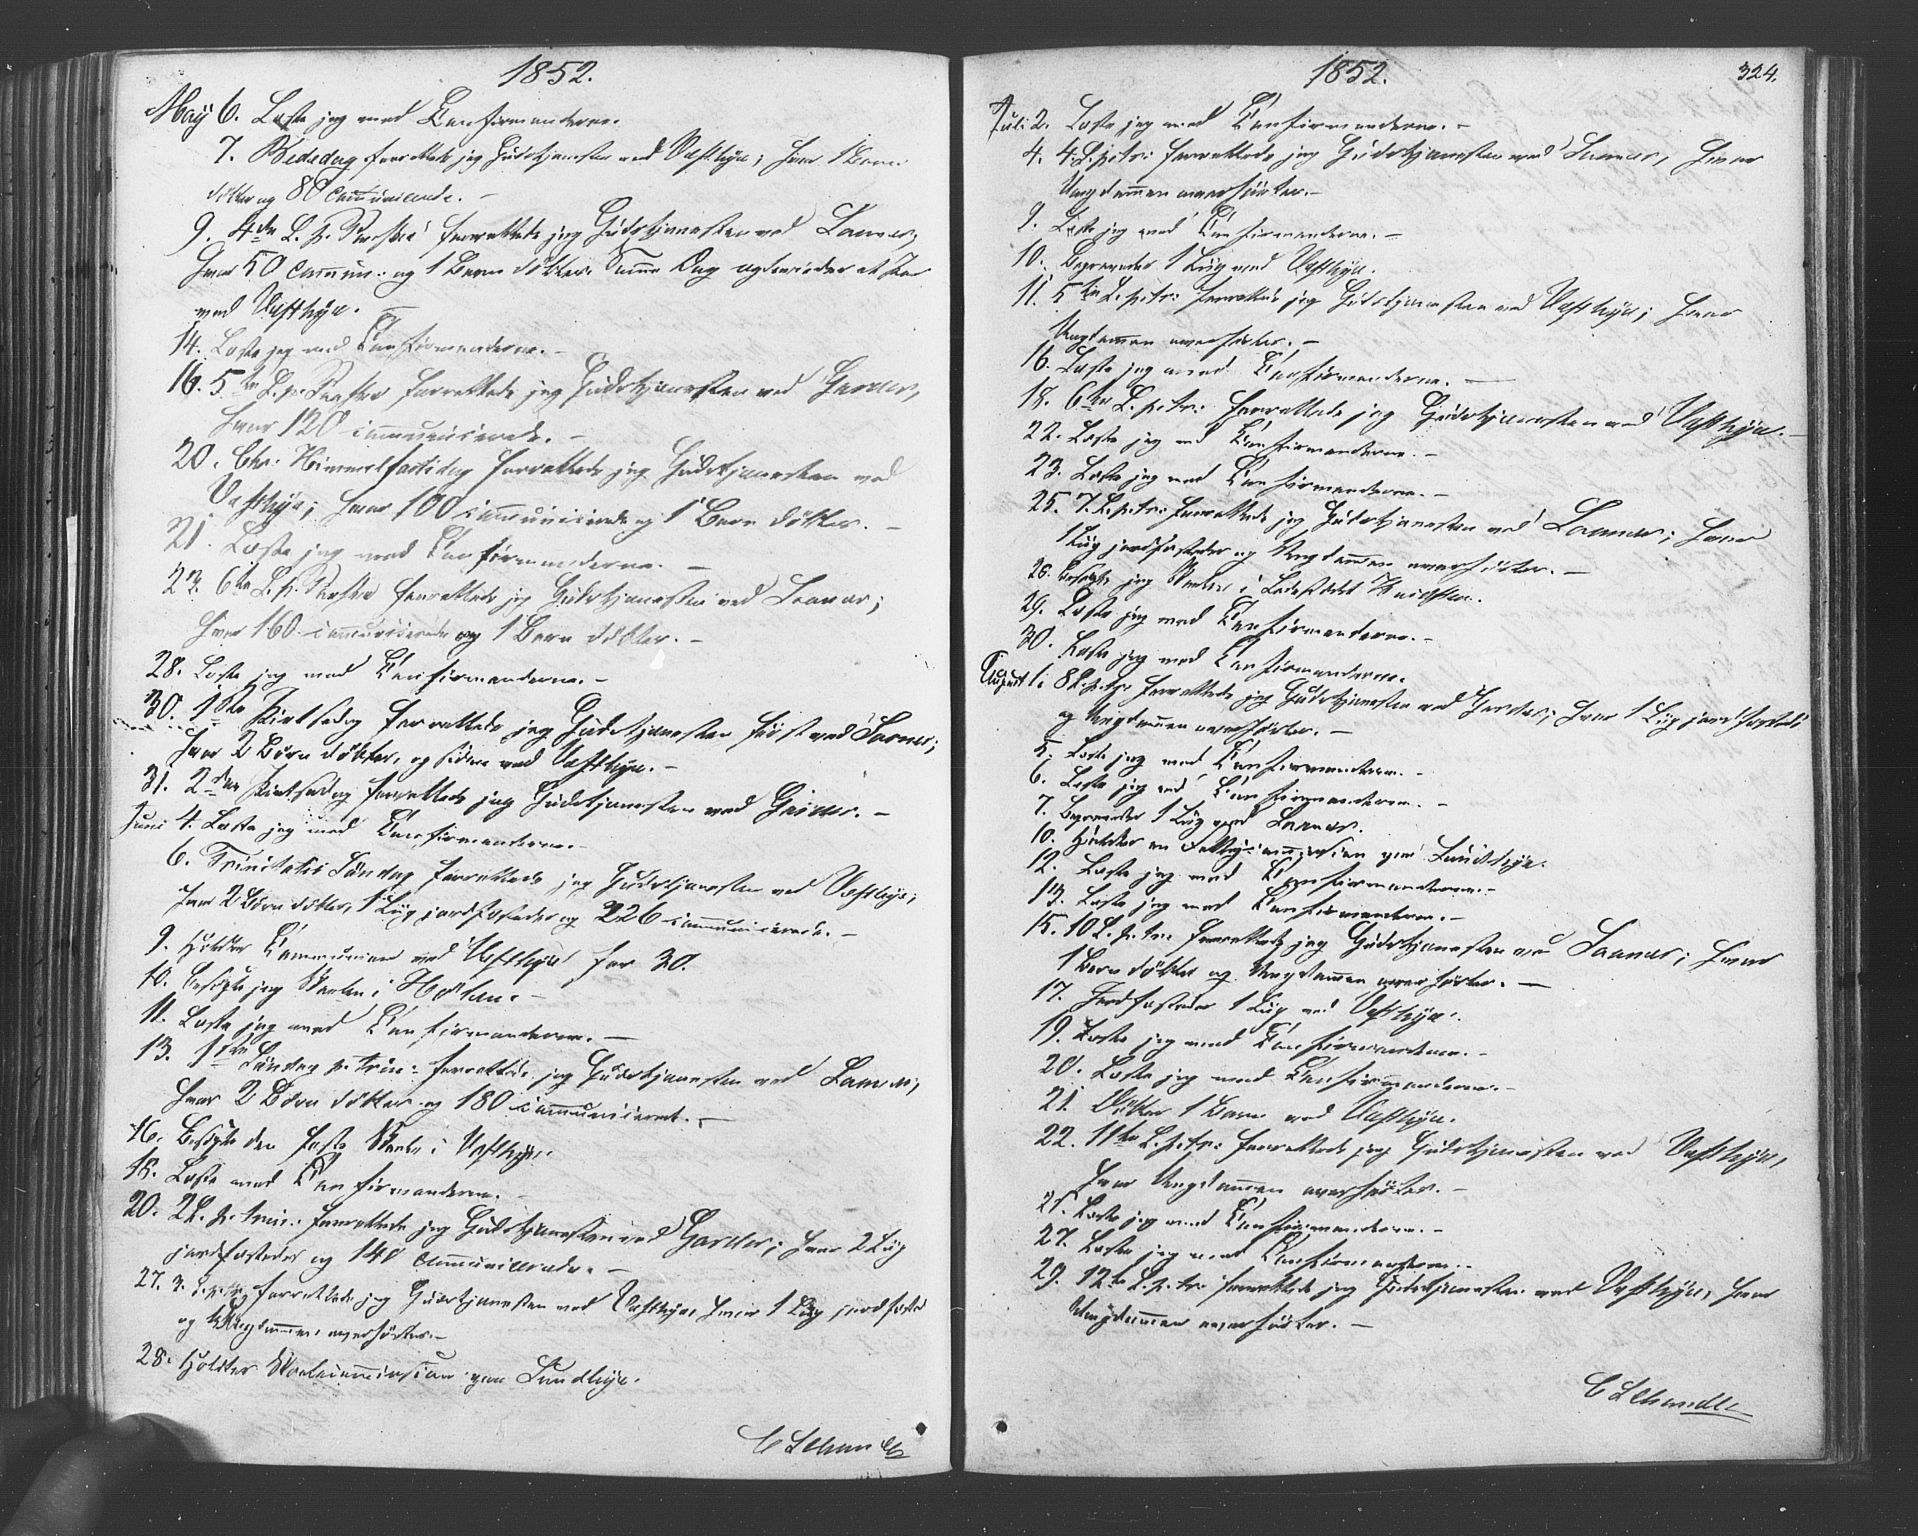 1852.
May 6. Læste jeg med Confirmanderne.
7. Bededag forrettede jeg Gudstjenesten ved Vestbye; hvor 1 Barn
döbtes og 80 communicerede. –
9. 4de S. p. Paaske forrettede jeg Gudstjenesten ved Soner;
hvor 50 commun: og 1 Barn döbtes. Samme Dag
ved Vestbye. –
14. Læste jeg med Confirmanderne. –
16. 5te S. p. Paaske forrettede jeg Gudstjenesten ved Garder,
hvor 120 communicerede. –
20. Chr: Himmelfartsdag forrettede jeg Gudstjenesten ved
Vestbye; hvor 100 communicerede og 1 Barn döbtes. –
21. Læste jeg med Confirmanderne. –
23. 6te S. p. Paaske forrettede jeg Gudstjenesten ved Soner;
hvor 160 communicerede og 1 Barn döbtes. –
28. Læste jeg med Confirmanderne. –
30. 1ste Pintsedag forrettede jeg Gudstjenesten först ved Soner;
hvor 2 Börn döbtes, og siden ved Vestbye. –
31. 2den Pintsedag forrettede jeg Gudstjenesten ved Garder. –
Juni 4. Læste jeg med Confirmanderne. –
6. Trinitatis Söndag forrettede jeg Gudstjenesten ved Vestbye;
hvor 2 Börn döbtes, 1 Liig jordfæstedes og 226 communicerede. –
9. Holdtes Communion ved Vestbye for 30.
10. Besögte jeg Skolen i Hölen. –
11. Læste jeg med Confirmanderne. –
13. 1ste Söndag p. trin: forrettede jeg Gudstjenesten ved Soner,
hvor 2 Börn döbtes og 180 communiceret. –
16. Besögte den faste Skole i Vestbye.
18. Læste med Confirmanderne. –
20. 2 S. p. trin: forrettede jeg Gudstjenesten ved Garder; hvor 2 Liig
jordfæstedes og 140 communicerede. –
27. 3. S. p. tr: forrettede jeg Gudstjenesten ved Vestbye, hvor 1 Liig jordfæsted
og Ungdommen overhörtes. –
28. Holdtes Skolecommission paa Sundbye.
C Schandle
1852.
324.
Juli 2. Læste jeg med Confirmanderne. –
4. 4 S. p. tr: forrettede jeg Gudstjenesten ved Soner, hvor
Ungdommen overhörtes. –
9. Læste jeg med Confirmanderne. –
10. Begravedes 1 Liig ved Vestbye.
11. 5te S. p. tr: forrettede jeg Gudstjenesten ved Vestbye; hvor
Ungdommen overhörtes. –
16. Læste jeg med Confirmanderne. –
18. 6te S. p. tr: forrettede jeg Gudstjenesten ved Vestbye. –
22. Læste jeg med Confirmanderne. –
23. Læste jeg med Confirmanderne. –
25. 7. S. p. tr: forrettede jeg Gudstjenesten ved Soner; hvor
1 Liig jordfæstedes og Ungdommen overhörtes. –
26. Besögte jeg Skolen i Ladestedet
29. Læste jeg med Confirmanderne. –
30. Læste jeg med Confirmanderne.
August 1. 8 S. p. tr: forrettede jeg Gudstjenesten ved Garder; hvor 1 Liig jordfæstedes
og Ungdommen overhörtes. –
5. Læste jeg med Confirmanderne. –
6. Læste jeg med Confirmanderne. –
7. Begravedes 1 Liig ved Soner.
10. Holdtes en Fattigcommission paa Sundbye.
12. Læste jeg med Confirmanderne. –
13. Læste jeg med Confirmanderne. –
15. 10 S. p. tr: forrettede jeg Gudstjenesten ved Soner; hvor
1 Barn döbtes og Ungdommen overhörtes. –
17. Jordfæstedes 1 Liig ved Vestbye.
19. Læste jeg med Confirmanderne. –
20. Læste jeg med Confirmanderne. –
21. Döbtes 1 Barn ved Vestbye.
22. 11te S. p. tr: forrettede jeg Gudstjenesten ved Vestbye,
hvor Ungdommen overhörtes. –
Læste jeg med Confirmanderne. –
27. Læste jeg med Confirmanderne. –
29. 12te S. p. tr: forrettede jeg Gudstjenesten ved Vestbye, hvor
Ungdommen overhörtes. –
C Schandle